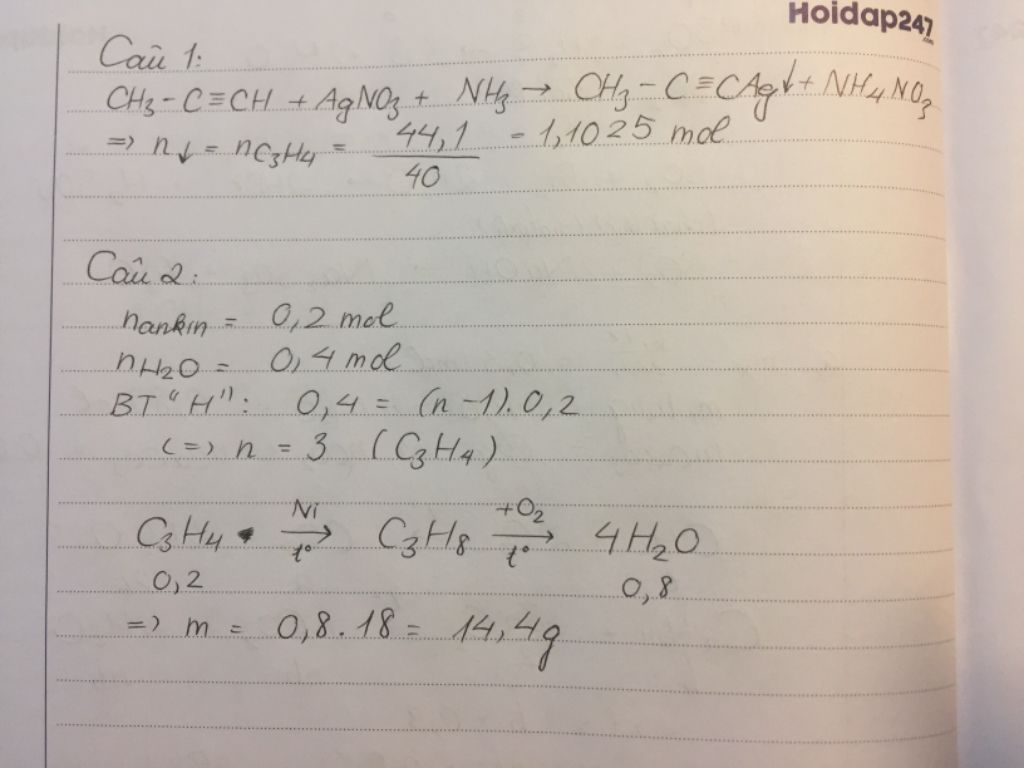 Hoidap247
.com
Câu 1:
CH3 - C ≡ CH + AgNO3 + NH3 → CH3 - C ≡ CAg↓ + NH4NO3
=> n↓ = nC3H4 = 44,1 / 40 = 1,1025 mol
Câu 2:
nankin = 0,2 mol
nH2O = 0,4 mol
BT "H": 0,4 = (n - 1). 0,2
(=) n = 3 (C3H4)
C3H4 Ni → t° C3H8 +O2 → t° 4H2O
0,2 0,8
=> m = 0,8 . 18 = 14,4g